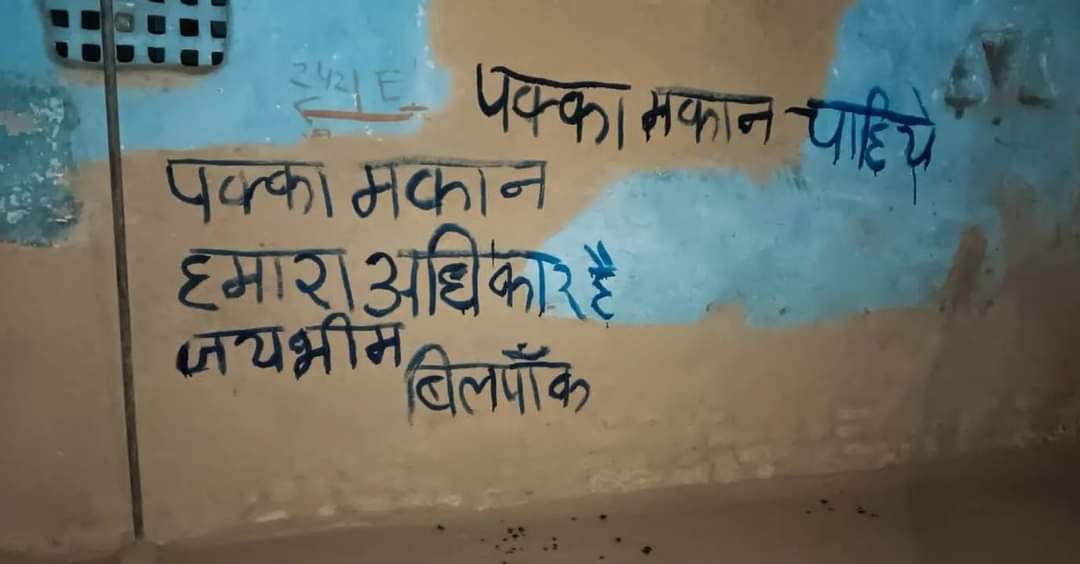 242 E
पक्का मकान चाहिये
पक्का मकान
हमारा अधिकार है
जयभीम
बिलपाँक